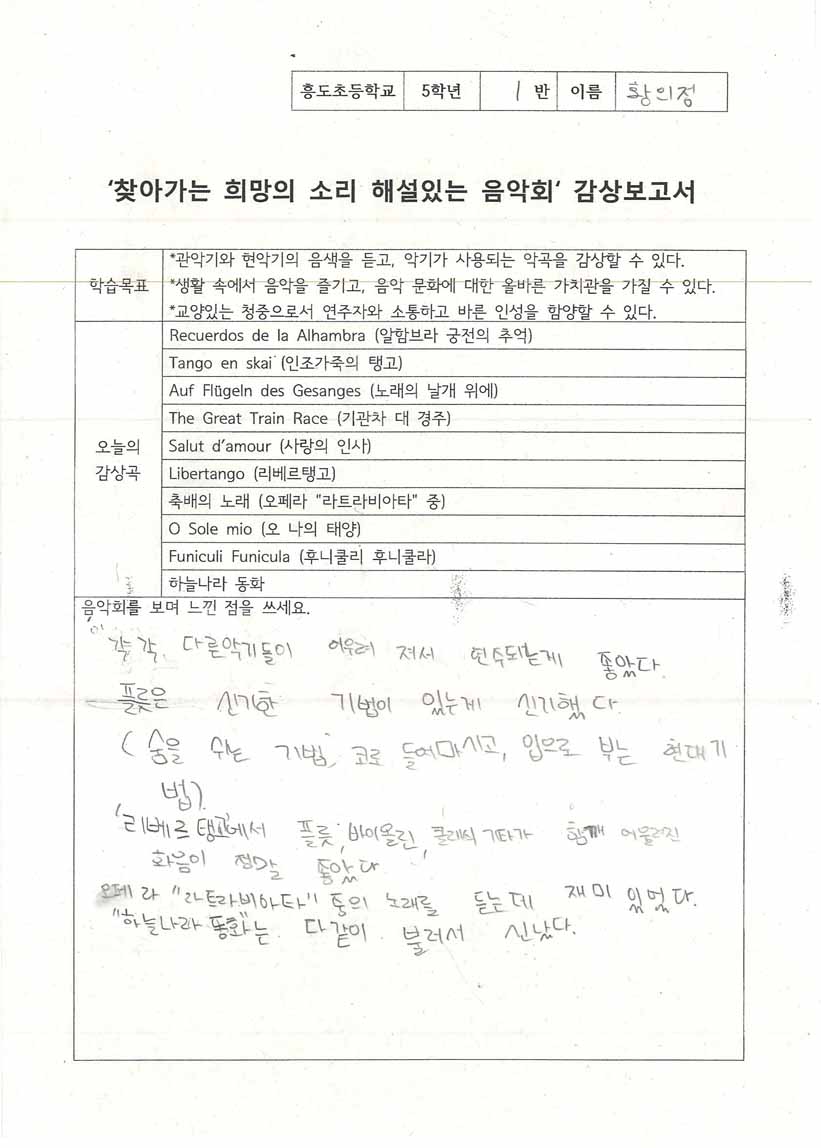 흥도초등학교 5학년 1 반 이름 황의정
'찾아가는 희망의 소리 해설있는 음악회' 감상보고서
학습목표
*관악기와 현악기의 음색을 듣고, 악기가 사용되는 악곡을 감상할 수 있다.
*생활 속에서 음악을 즐기고, 음악 문화에 대한 올바른 가치관을 가질 수 있다.
*교양있는 청중으로서 연주자와 소통하고 바른 인성을 함양할 수 있다.
오늘의
감상곡
Recuerdos de la Alhambra (알함브라 궁전의 추억)
Tango en skai (인조가죽의 탱고)
Auf Flügeln des Gesanges (노래의 날개 위에)
The Great Train Race (기관차 대 경주)
Salut d'amour (사랑의 인사)
Libertango (리베르탱고)
축배의 노래 (오페라 "라트라비아타" 중)
O Sole mio (오 나의 태양)
Funiculi Funicula (후니쿨리 후니쿨라)
하늘나라 동화
음악회를 보며 느낀 점을 쓰세요.
각각 다른악기들이 어우려 져서 연수되는게 좋았다.
플룻은 신기한 기법이 있는게 신기했다.
(숨을 쉬는 기법, 코로 들어마시고, 입으로 부는 현대기
법).
'리베르탱고'에서 플룻, 바이올린, 클래식 기타가 함께 어울러진
화음이 정말 좋았다.
오페라 "라트라비아타" 중의 노래를 듣는데 재미있었다.
"하늘나라 동화"는 다같이 불러서 신났다.